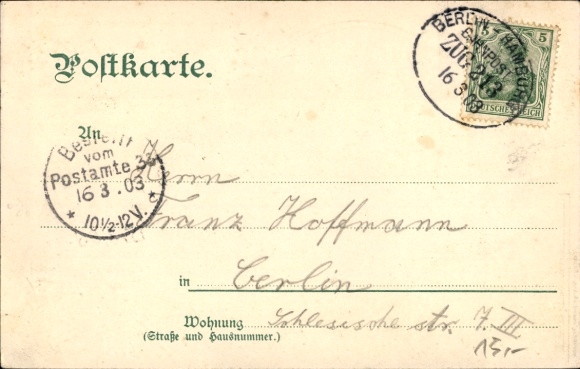 BERLIN HAMBURG
BAHNPOST
ZUG 213
16 3 03
5 5
DEUTSCHES REICH
Postkarte.
An
Bestellt
vom
Postamte 33
16 3. 03
* 10½-12V.
Herrn
Franz Hoffmann
in Berlin
Wohnung Schlesische str. 7. III
(Straße und Hausnummer.)
15,-